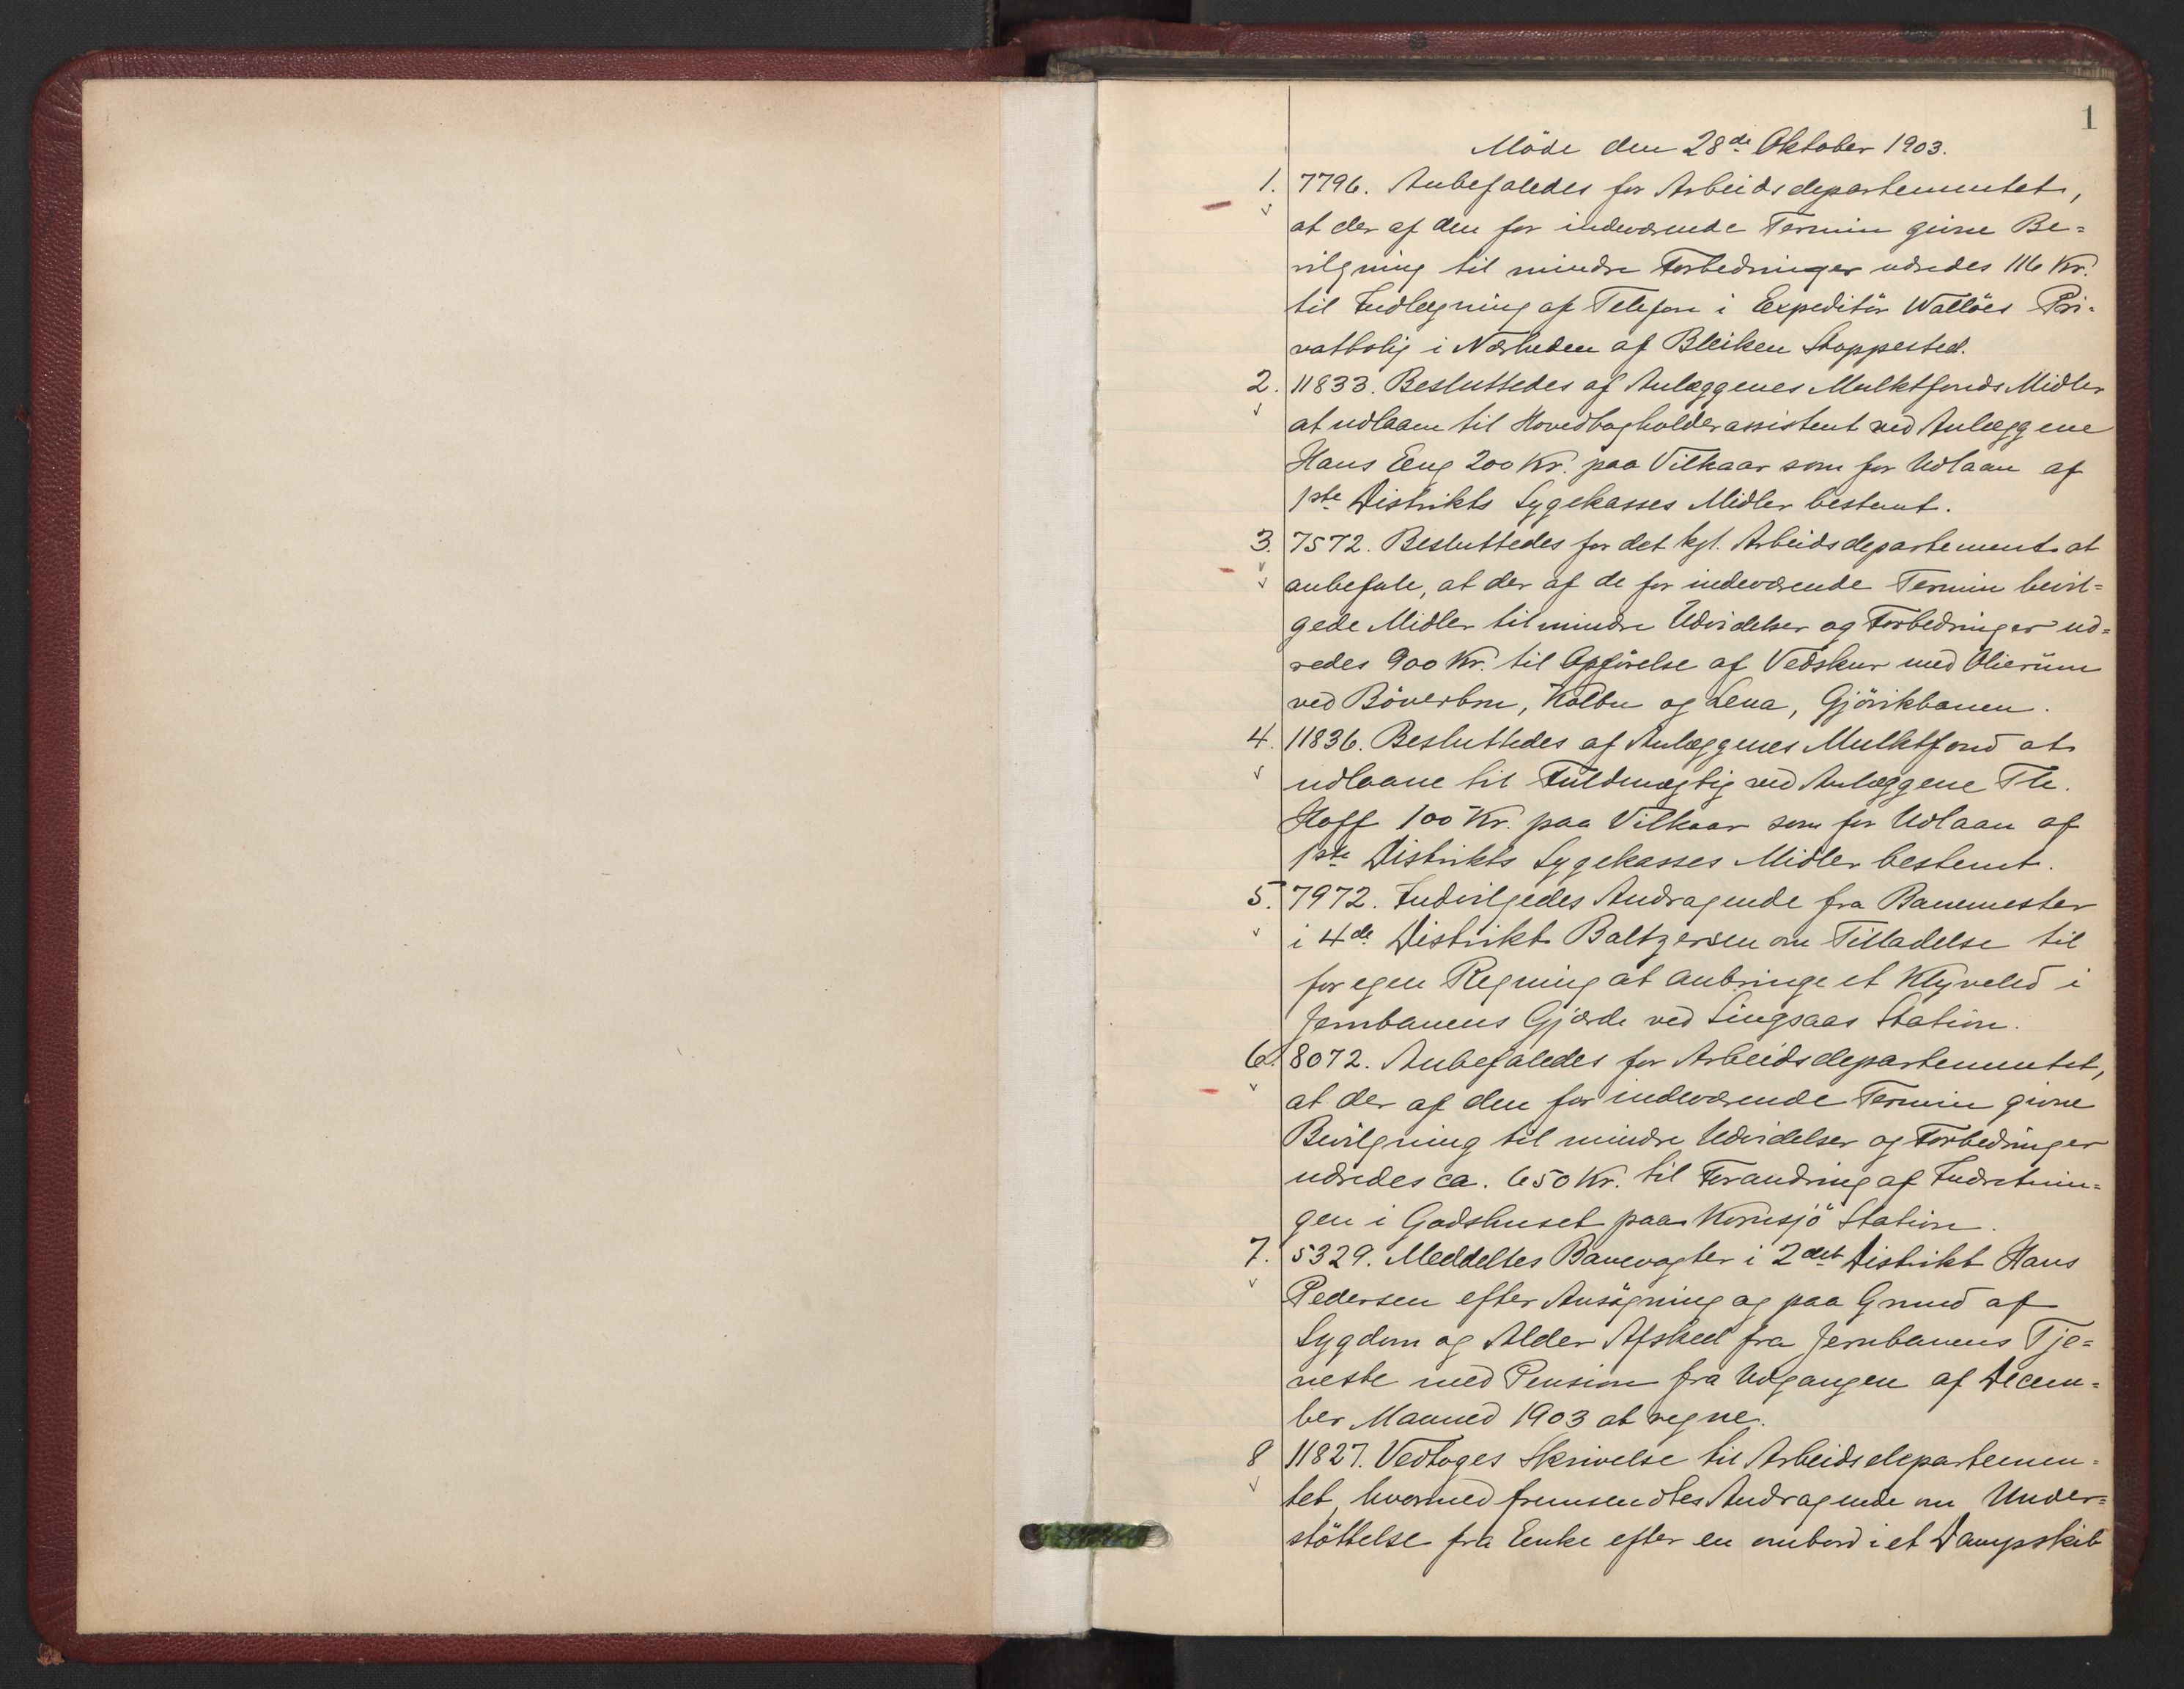 1
Møde den 28de Oktober 1903.
1. 7796. Anbefaledes for Arbeidsdepartementet,
at der af den for indeværende Termin givne Be=
vilgning til mindre Forbedringer udredes 116 Kr.
til Indlægning af Telefon i Expeditör Wallöes Pri=
vatbolig i Nærheden af Bleiken Stoppested.
2. 11833. Besluttedes af Anlæggenes Mulktfonds Midler
at udlaane til Hovedbogholderassistent ved Anlæggene
Hans Eng 200 Kr. paa Vilkaar som for Udlaan af
1ste Distrikts Sygekasses Midler bestemt.
3. 7572. Besluttedes for det kgl. Arbeidsdepartement at
anbefale, at der af de for indeværende Termin bevil=
gede Midler til mindre Udvidelser og Forbedringer ud=
redes 900 Kr. til Opförelse af Vedskur med Olierum
ved Böverbru, Kolbu og Lena, Gjövikbanen.
4. 11836. Besluttedes af Anlæggenes Mulktfond at
udlaane til Fuldmægtig ved Anlæggene Th.
Hoff 100 Kr. paa Vilkaar som for Udlaan af
1ste Distrikts Sygekasses Midler bestemt.
5. 7972. Indvilgedes Andragende fra Banemester
i 4de Distrikt Baltzersen om Tilladelse til
for egen Regning at anbringe et Klyveled i
Jernbanens Gjærde ved Singsaas Station.
6. 8072. Anbefaledes for Arbeidsdepartementet,
at der af den for indeværende Termin givne
Bevilgning til mindre Udvidelser og Forbedringer
udredes ca. 650 Kr. til Forandring af Indretnin=
gen i Godshuset paa Kornsjö Station.
7. 5329. Meddeltes Banevogter i 2det Distrikt Hans
Pedersen efter Ansögning og paa Grund af
Sygdom og Alder Afsked fra Jernbanens Tje=
neste med Pension fra Udgangen af Decem=
ber Maaned 1903 at regne.
8 11827. Vedtoges Skrivelse til Arbeidsdepartemen=
tet, hvormed fremsendtes Andragende om Under=
støttelse fra Enke efter en ombord i et Dampskib